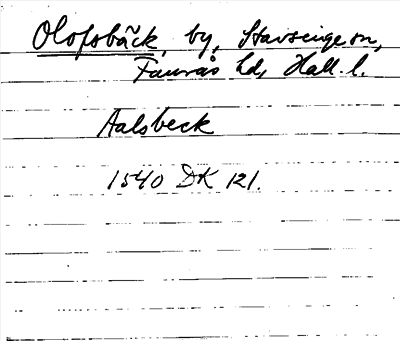 Olofsbäck, by, Stavsinge sn,
Faurås hd, Hall. l.
Aalsbeck
1540 DK 121.